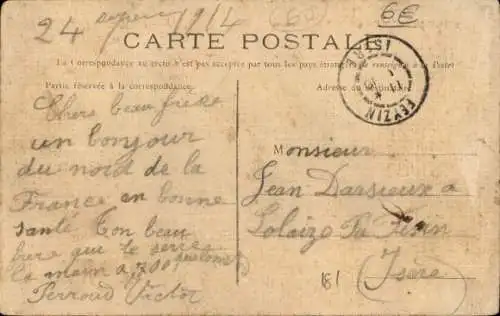 24 1914
6€
CARTE POSTALE
La Correspondance au recto n'est pas acceptée par tous les pays étrangers (Se renseigner à la Poste)
Partie réservée à la correspondance.
Adresse du destinataire
FEYZIN
Chers beau frère
un bonjour
du nord de la
France en bonne
santé Ton beau
frère que te serre
la main a 700
Perroud Victor
Monsieur
Jean Darsieux a
Isère